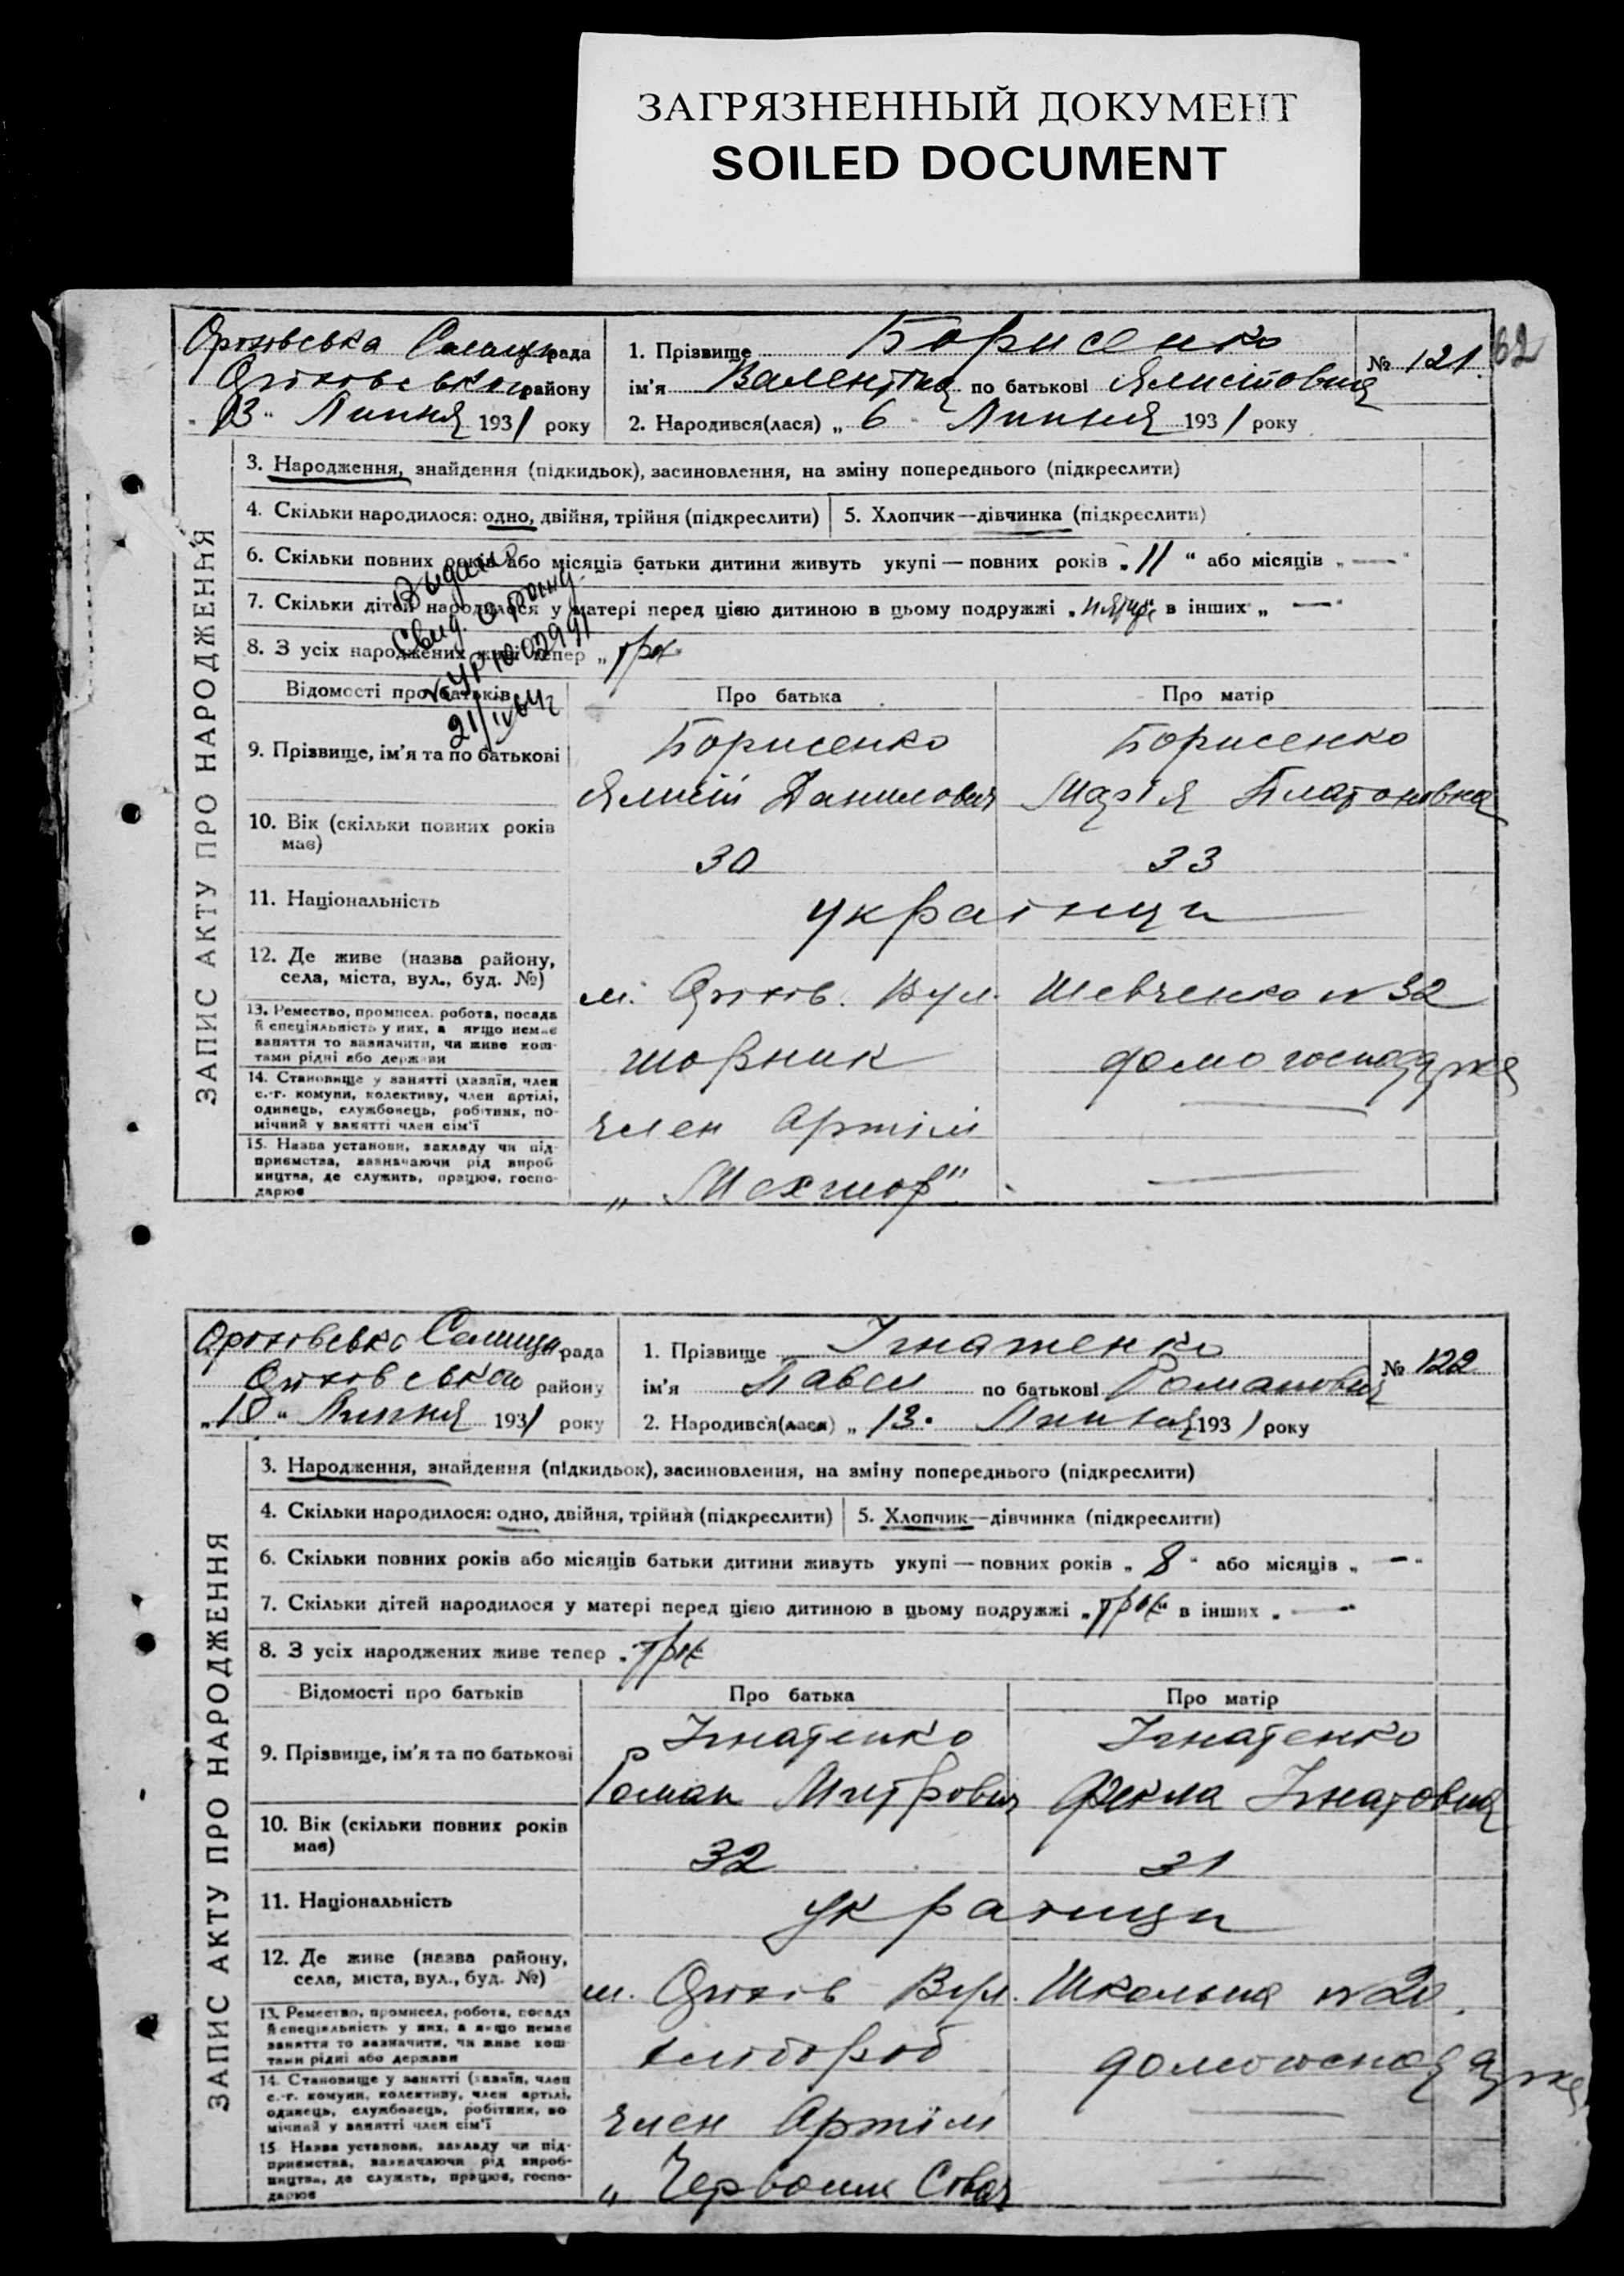 ЗАГРЯЗНЕННЫЙ ДОКУМЕНТ
SOILED DOCUMENT
62
Оріхівська Селищн рада
Оріхівського району
"13" Липня 1931 року
1. Прізвище Борисенко
№ 121.
ім'я Валентина по батькові
2. Народився(лася) „ 6 " Липня 1931 року
ЗАПИС АКТУ ПРО НАРОДЖЕННЯ
3. Народження, знайдення (підкидьок), засиновлення, на зміну попереднього (підкреслити)
4. Скільки народилося: одно, двійня, трійня (підкреслити)
5. Хлопчик—дівчинка (підкреслити)
6. Скільки повних років або місяців батьки дитини живуть укупі — повних років „ 11 " або місяців „ — "
7. Скільки дітей народилося у матері перед цією дитиною в цьому подружжі „ " в інших „ — "
8. З усіх народжених живе тепер „ трох "
Выдано
Свид. о рожд.
21/IV 64 г
Відомості про батьків
Про батька
Про матір
9. Прізвище, ім'я та по батькові
Борисенко
Данилович
Борисенко
Марія Платоновна
10. Вік (скільки повних років має)
30
33
11. Національність
українци
12. Де живе (назва району, села, міста, вул., буд. №)
м. Оріхів. Вул. Шевченко № 32
13. Ремество, промисел, робота, посада й спеціяльність у них, а якщо немає заняття то зазначити, чи живе коштами рідні або держави
шорник
домогосподарка
14. Становище у занятті (хазяїн, член с.-г. комуни, колективу, член артілі, одинець, службовець, робітник, помічний у занятті член сім'ї
член Артіли
—
15. Назва установи, закладу чи підприємства, зазначаючи рід виробництва, де служить, працює, господарює
„ Мехшор"
—
Оріхівська Селищн рада
Оріхівського району
„18" Липня 1931 року
1. Прізвище Ігнатенко
№ 122
ім'я Павел по батькові Романович
2. Народився(лася) „ 13. Липня 1931 року
ЗАПИС АКТУ ПРО НАРОДЖЕННЯ
3. Народження, знайдення (підкидьок), засиновлення, на зміну попереднього (підкреслити)
4. Скільки народилося: одно, двійня, трійня (підкреслити)
5. Хлопчик—дівчинка (підкреслити)
6. Скільки повних років або місяців батьки дитини живуть укупі — повних років „ 8 " або місяців „ — "
7. Скільки дітей народилося у матері перед цією дитиною в цьому подружжі „ трох " в інших „ — "
8. З усіх народжених живе тепер „ трох
Відомості про батьків
Про батька
Про матір
9. Прізвище, ім'я та по батькові
Ігнатенко
Роман Митрович
Ігнатенко
Фекла Ігнатовна
10. Вік (скільки повних років має)
32
31
11. Національність
українци
12. Де живе (назва району, села, міста, вул., буд. №)
м. Оріхів Вул. Школьна № 20.
13. Ремество, промисел, робота, посада й спеціяльність у них, а якщо немає заняття то зазначити, чи живе коштами рідні або держави
хлібороб
домогосподарка
14. Становище у занятті (хазяїн, член с.-г. комуни, колективу, член артілі, одинець, службовець, робітник, помічний у занятті член сім'ї
член Артіли
—
15. Назва установи, закладу чи підприємства, зазначаючи рід виробництва, де служить, працює, господарює
„ Червоник
—